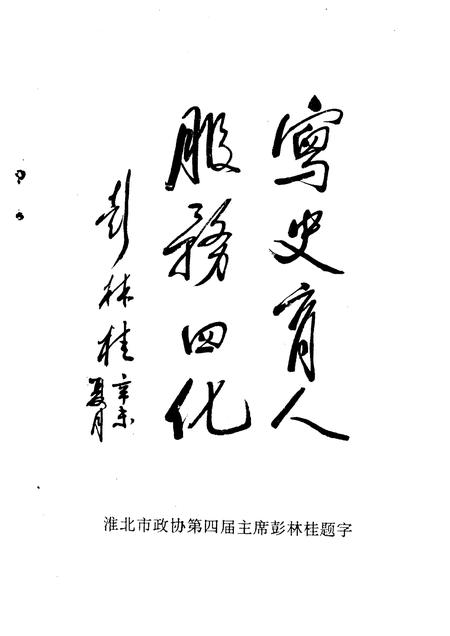 寫史育人
服務四化
彭林桂
辛未
夏月
淮北市政协第四届主席彭林桂题字